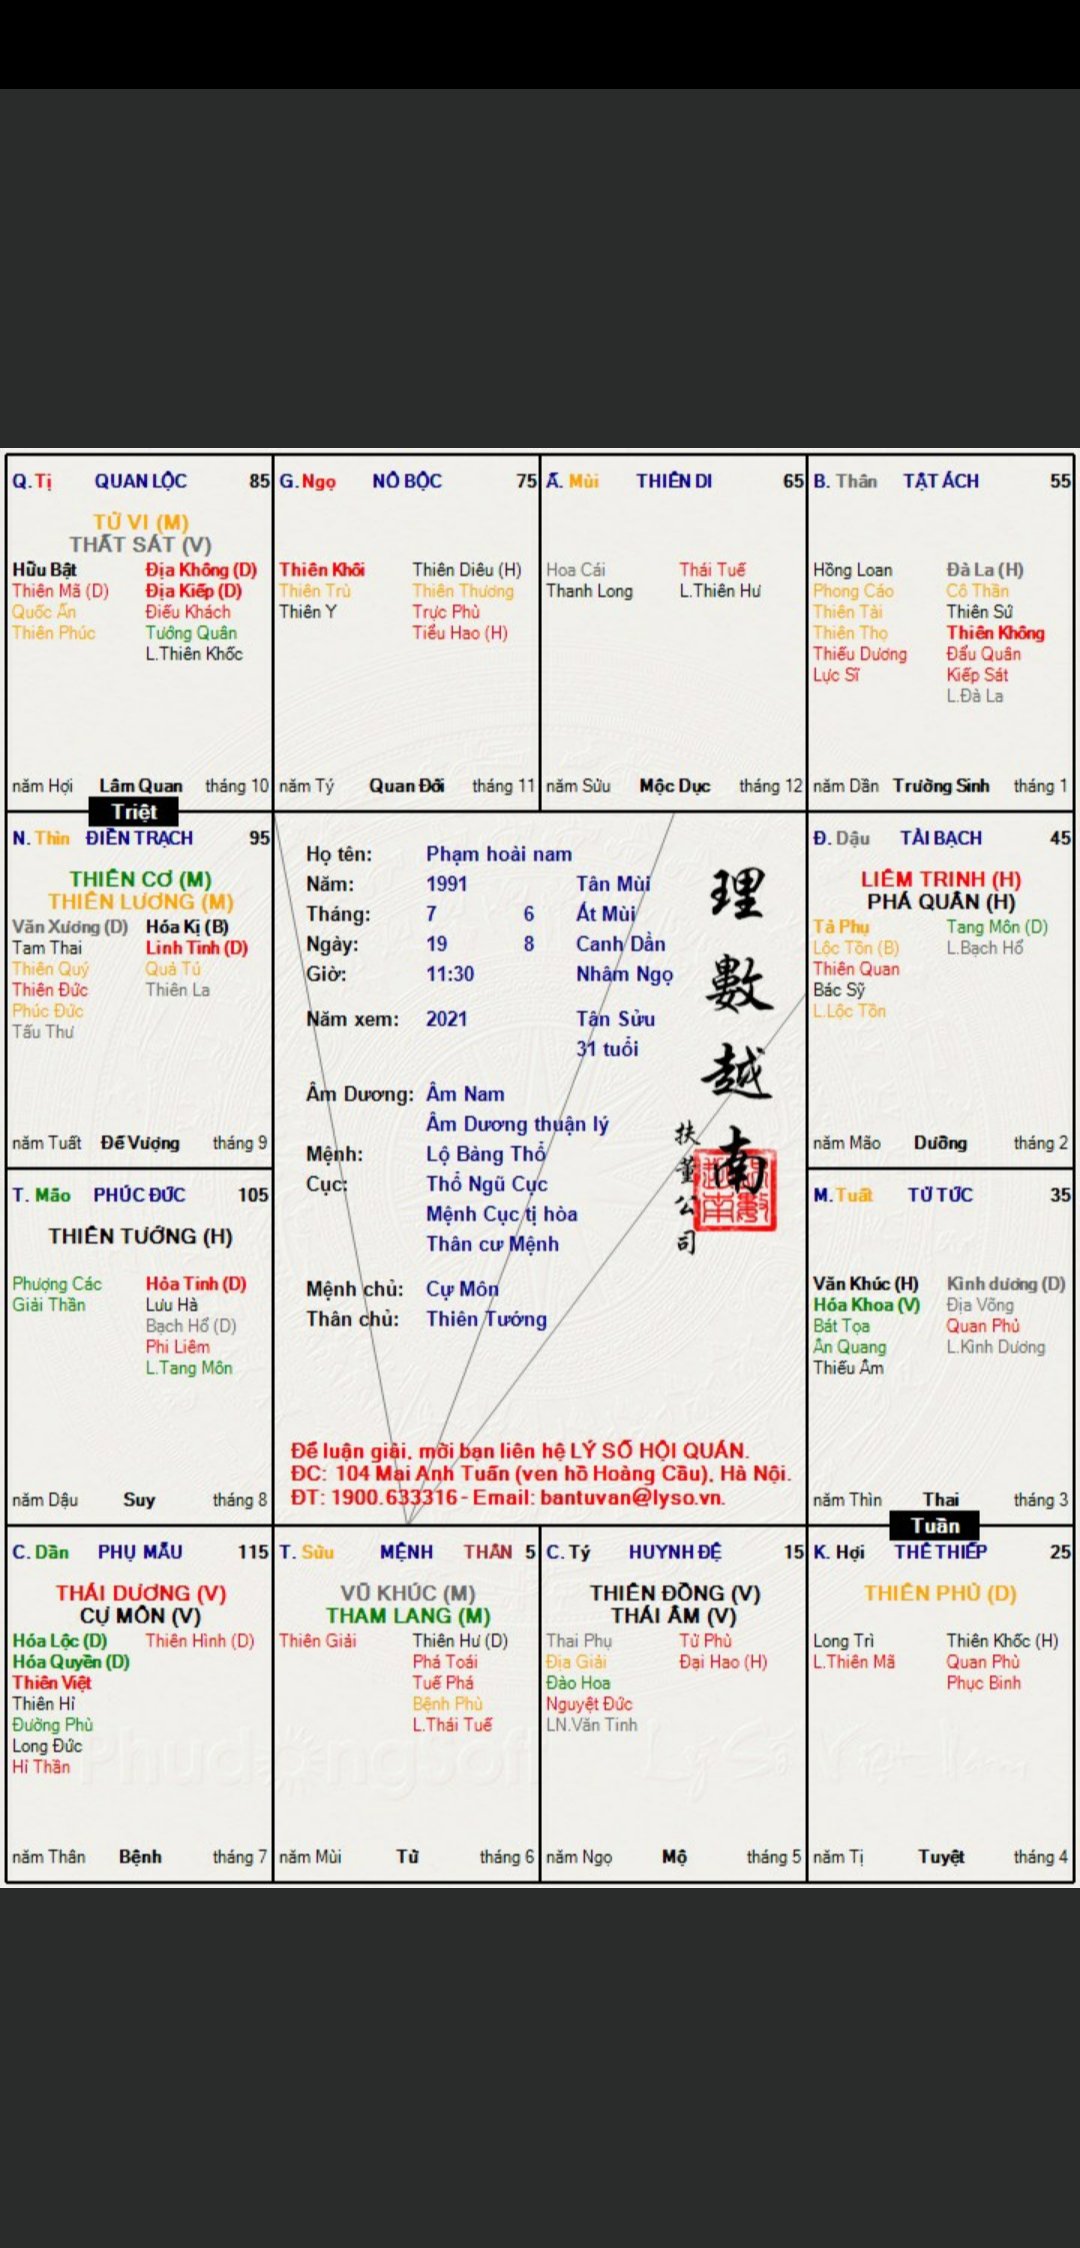 Q. Tị QUAN LỘC 85
TỬ VI (M)
THẤT SÁT (V)
Hữu Bật Địa Không (D)
Thiên Mã (D) Địa Kiếp (D)
Quốc Ấn Điếu Khách
Thiên Phúc Tướng Quân
L.Thiên Khốc
năm Hợi Lâm Quan tháng 10
G. Ngọ NÔ BỘC 75
Thiên Khôi Thiên Diêu (H)
Thiên Trù Thiên Thương
Thiên Y Trực Phù
Tiểu Hao (H)
năm Tý Quan Đới tháng 11
Ấ. Mùi THIÊN DI 65
Hoa Cái Thái Tuế
Thanh Long L.Thiên Hư
năm Sửu Mộc Dục tháng 12
B. Thân TẬT ÁCH 55
Hồng Loan Đà La (H)
Phong Cáo Cô Thần
Thiên Tài Thiên Sứ
Thiên Thọ Thiên Không
Thiếu Dương Đẩu Quân
Lực Sĩ Kiếp Sát
L.Đà La
năm Dần Trường Sinh tháng 1
Triệt
N. Thìn ĐIỀN TRẠCH 95
THIÊN CƠ (M)
THIÊN LƯƠNG (M)
Văn Xương (D) Hóa Kị (B)
Tam Thai Linh Tinh (D)
Thiên Quý Quả Tú
Thiên Đức Thiên La
Phúc Đức
Tấu Thư
năm Tuất Đế Vượng tháng 9
Họ tên: Phạm hoài nam
Năm: 1991 Tân Mùi
Tháng: 7 6 Ất Mùi
Ngày: 19 8 Canh Dần
Giờ: 11:30 Nhâm Ngọ
Năm xem: 2021 Tân Sửu
31 tuổi
Âm Dương: Âm Nam
Âm Dương thuận lý
Mệnh: Lộ Bàng Thổ
Cục: Thổ Ngũ Cục
Mệnh Cục tị hòa
Thân cư Mệnh
Mệnh chủ: Cự Môn
Thân chủ: Thiên Tướng
理數越南
扶董公司
Để luận giải, mời bạn liên hệ LÝ SỐ HỘI QUÁN.
ĐC: 104 Mai Anh Tuấn (ven hồ Hoàng Cầu), Hà Nội.
ĐT: 1900.633316 - Email: bantuvan@lyso.vn.
Đ. Dậu TÀI BẠCH 45
LIÊM TRINH (H)
PHÁ QUÂN (H)
Tả Phụ Tang Môn (D)
Lộc Tồn (B) L.Bạch Hổ
Thiên Quan
Bác Sỹ
L.Lộc Tồn
năm Mão Dưỡng tháng 2
T. Mão PHÚC ĐỨC 105
THIÊN TƯỚNG (H)
Phượng Các Hỏa Tinh (D)
Giải Thần Lưu Hà
Bạch Hổ (D)
Phi Liêm
L.Tang Môn
năm Dậu Suy tháng 8
M. Tuất TỬ TỨC 35
Văn Khúc (H) Kình dương (D)
Hóa Khoa (V) Địa Võng
Bát Tọa Quan Phủ
Ân Quang L.Kình Dương
Thiếu Âm
năm Thìn Thai tháng 3
Tuần
C. Dần PHỤ MẪU 115
THÁI DƯƠNG (V)
CỰ MÔN (V)
Hóa Lộc (D) Thiên Hình (D)
Hóa Quyền (D)
Thiên Việt
Thiên Hỉ
Đường Phù
Long Đức
Hỉ Thần
năm Thân Bệnh tháng 7
T. Sửu MỆNH THÂN 5
VŨ KHÚC (M)
THAM LANG (M)
Thiên Giải Thiên Hư (D)
Phá Toái
Tuế Phá
Bệnh Phù
L.Thái Tuế
năm Mùi Tử tháng 6
C. Tý HUYNH ĐỆ 15
THIÊN ĐỒNG (V)
THÁI ÂM (V)
Thai Phụ Tử Phù
Địa Giải Đại Hao (H)
Đào Hoa
Nguyệt Đức
LN.Văn Tinh
năm Ngọ Mộ tháng 5
K. Hợi THÊ THIẾP 25
THIÊN PHỦ (D)
Long Trì Thiên Khốc (H)
L.Thiên Mã Quan Phù
Phục Binh
năm Tị Tuyệt tháng 4